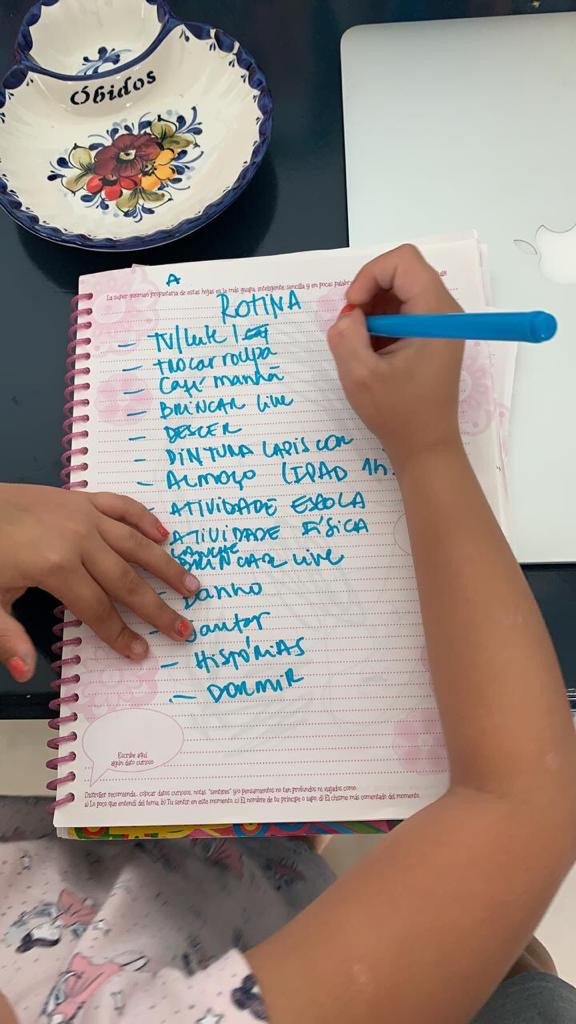 Óbidos
A
La super woman propietaria de estas hojas es la más guapa, inteligente, sencilla y en pocas palabras
ROTINA
- TV/Leite/
- trocar roupa
- Café manhã
- BRINCAR live
- DESCER
- PINTURA LAPIS COR
- ALMOÇO (IPAD 1h.
- ATIVIDADE ESCOLA
ATIVIDADE FÍSICA
LANCHE
BRINCAR livre
- banho
- Jantar
- HISTÓRIAS
- DORMIR
Escribe aquí
algún dato curioso
Distroller recomienda... colocar datos curiosos, notas, "sentires" y/o pensamientos no tan profundos ni viajados como:
a) Lo poco que entendí del tema. b) Tu sentir en este momento. c) El nombre de tu príncipe o sapo. d) El chisme más comentado del momento.